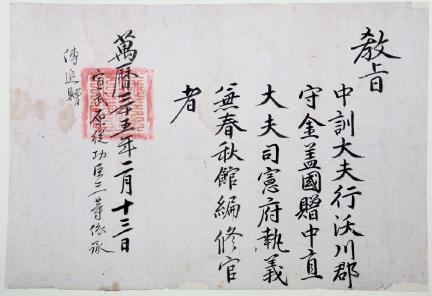 教旨
中訓大夫行沃川郡
守金盖國贈中直
大夫司憲府執義
兼春秋館編修官
者
萬曆三十五年二月十三日
宣武原從功臣三等依承
傳追贈